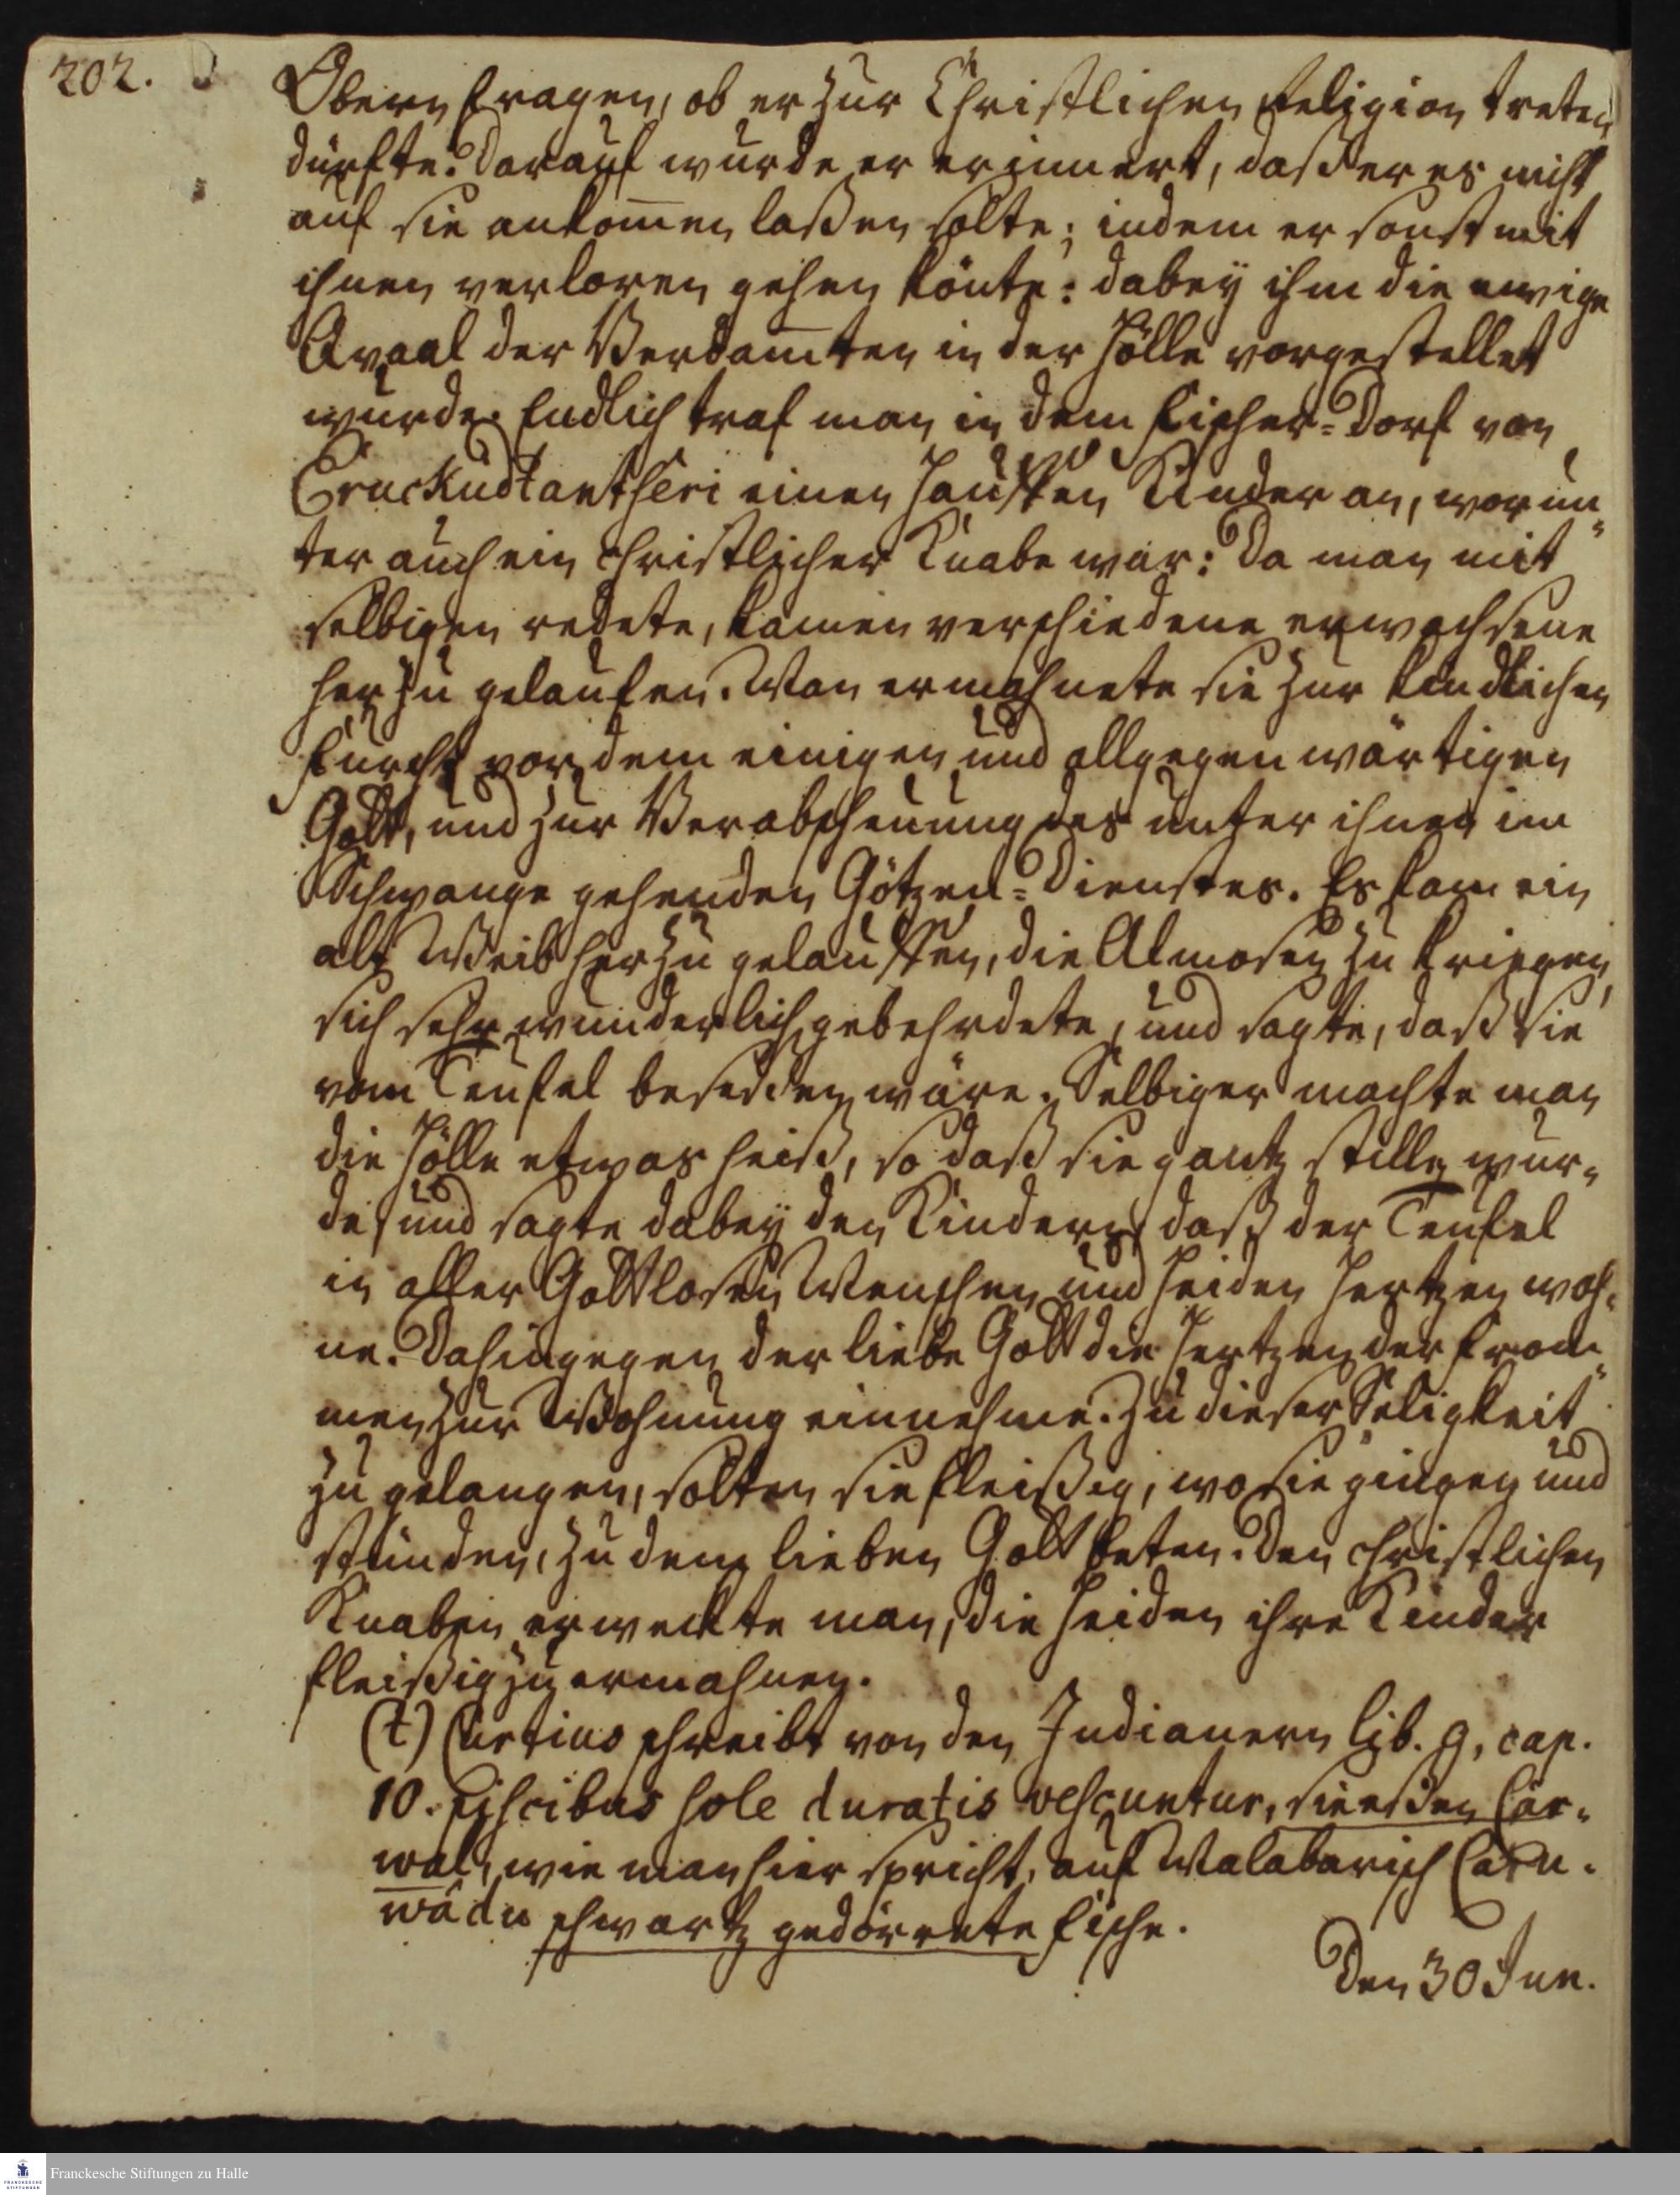 202.
Obern fragen, ob er zur Christlichen Religion treten
dürfte. Darauf wurde er erinnert, daß er es nicht
auf sie ankom̄en laßen solte; indem er sonst mit
ihnen verloren gehen könte: dabey ihm die ewige
Qvaal der Verdam̄ten in der Hölle vorgestellet
wurde. Endlich traf man in dem Fischer-Dorf von
Eruckudtantseri einen Hauffen Kinder an, worun-
ter auch ein christlicher Knabe war: Da man mit
selbigen redete, kamen verschiedene erwachsene
herzu gelaufen. Man ermahnete sie zur kindlichen
Furcht vor dem einigen und allgegenwärtigen
Gott, und zur Verabscheuung des unter ihnen im
Schwange gehenden Götzen-Dienstes. Es kam ein
alt Weib herzu gelauffen, die Almosen zu kriegen,
sich sehr wunderlich gebehrdete, und sagte, daß sie
vom Teufel beseßen wäre. Selbiger machte man
die Hölle etwas heiß, so daß sie gantz stille wur-
de, und sagte dabey den Kindern, daß der Teufel
in aller Gottlosen Menschen und Heiden Hertzen woh-
ne. Dahingegen der liebe Gott die Hertzen der From-
men zur Wohnung einnehme. Zu dieser Seligkeit
zu gelangen, solten sie fleißig, wo sie gingen und
stünden, zu dem lieben Gott beten. Den christlichen
Knaben erweckte man, die Heiden ihre Kinder
fleißig zu ermahnen.
(t) Curtius schreibt von den Indianern lib. 9, cap.
10. piscibus sole duratis vescuntur, sie eßen Car-
wat, wie man hier spricht, auf Malabarisch Caru-
wâdu schwartz gedörrete Fische.
Den 30 Jun.
Franckesche Stiftungen zu Halle